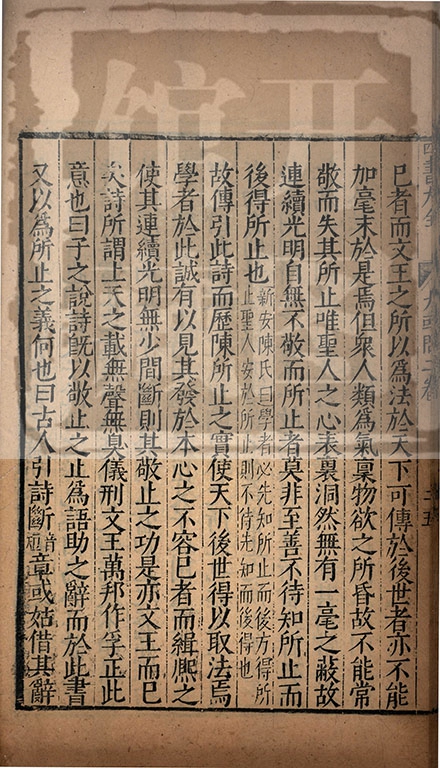 已者而文王之所以為法於天下可傳於後世者亦不能
加毫末於是焉但衆人類為氣禀物欲之所昏故不能常
敬而失其所止唯聖人之心表裏洞然無有一毫之蔽故
連續光明自無不敬而所止者莫非至善不待知所止而
後得所止也新安陳氏曰學者必先知所止而後方得所
止聖人安於所止則不待先知而後得也
故傳引此詩而歷陳所止之實使天下後世得以取法焉
學者於此誠有以見其發於本心之不容已者而緝熙之
使其連續光明無少間斷則其敬止之功是亦文王而已
矣詩所謂上天之載無聲無臭儀刑文王萬邦作孚正此
意也曰子之說詩既以敬止之止為語助之辭而於此書
又以為所止之義何也曰古人引詩斷章或姑借其辭